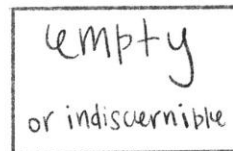 empty
or indiscernible